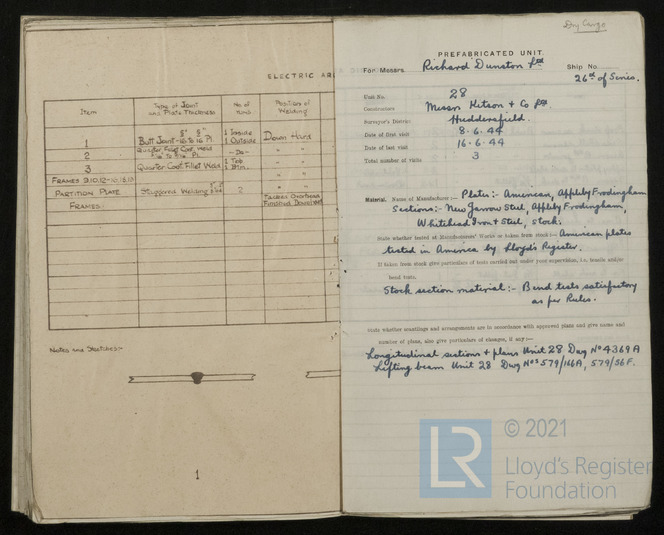 ELECTRIC AR
Item
Type of Joint and Plate Thickness
No of Runs
Position of Welding
1
Butt Joint
1 Inside
1 Outside
Down Hand
2
Quarter Pl.
-Do-
3
Quarter Cont. Fillet Weld
1 Top
FRAMES
PARTITION PLATE
Staggered Welding
2
FRAMES
Notes and Sketches:-
1
Dry Cargo
PREFABRICATED UNIT.
For Messrs. Richard Dunston Ltd
Ship No.
26th of Series.
Unit No. 28
Constructors Messrs Kitson & Co Ltd
Surveyor's District Huddersfield.
Date of first visit 8.6.44
Date of last visit 16.6.44
Total number of visits 3
Material. Name of Manufacturer:— Plates:- American, Appleby Frodingham
Sections:- New Jarrow Steel, Appleby Frodingham,
Whitehead Iron & Steel, Stock.
State whether tested at Manufacturers' Works or taken from stock:— American plates
tested in America by Lloyd's Register.
If taken from stock give particulars of tests carried out under your supervision, i.e. tensile and/or
bend tests.
Stock section material:- Bend tests satisfactory
as per Rules.
State whether scantlings and arrangements are in accordance with approved plans and give name and
number of plans, also give particulars of changes, if any:—
Longitudinal sections & plans Unit 28 Dwg No 4369A
Lifting beam Unit 28 Dwg Nos 579/166A, 579/56F.
© 2021
LR
Lloyd's Register
Foundation